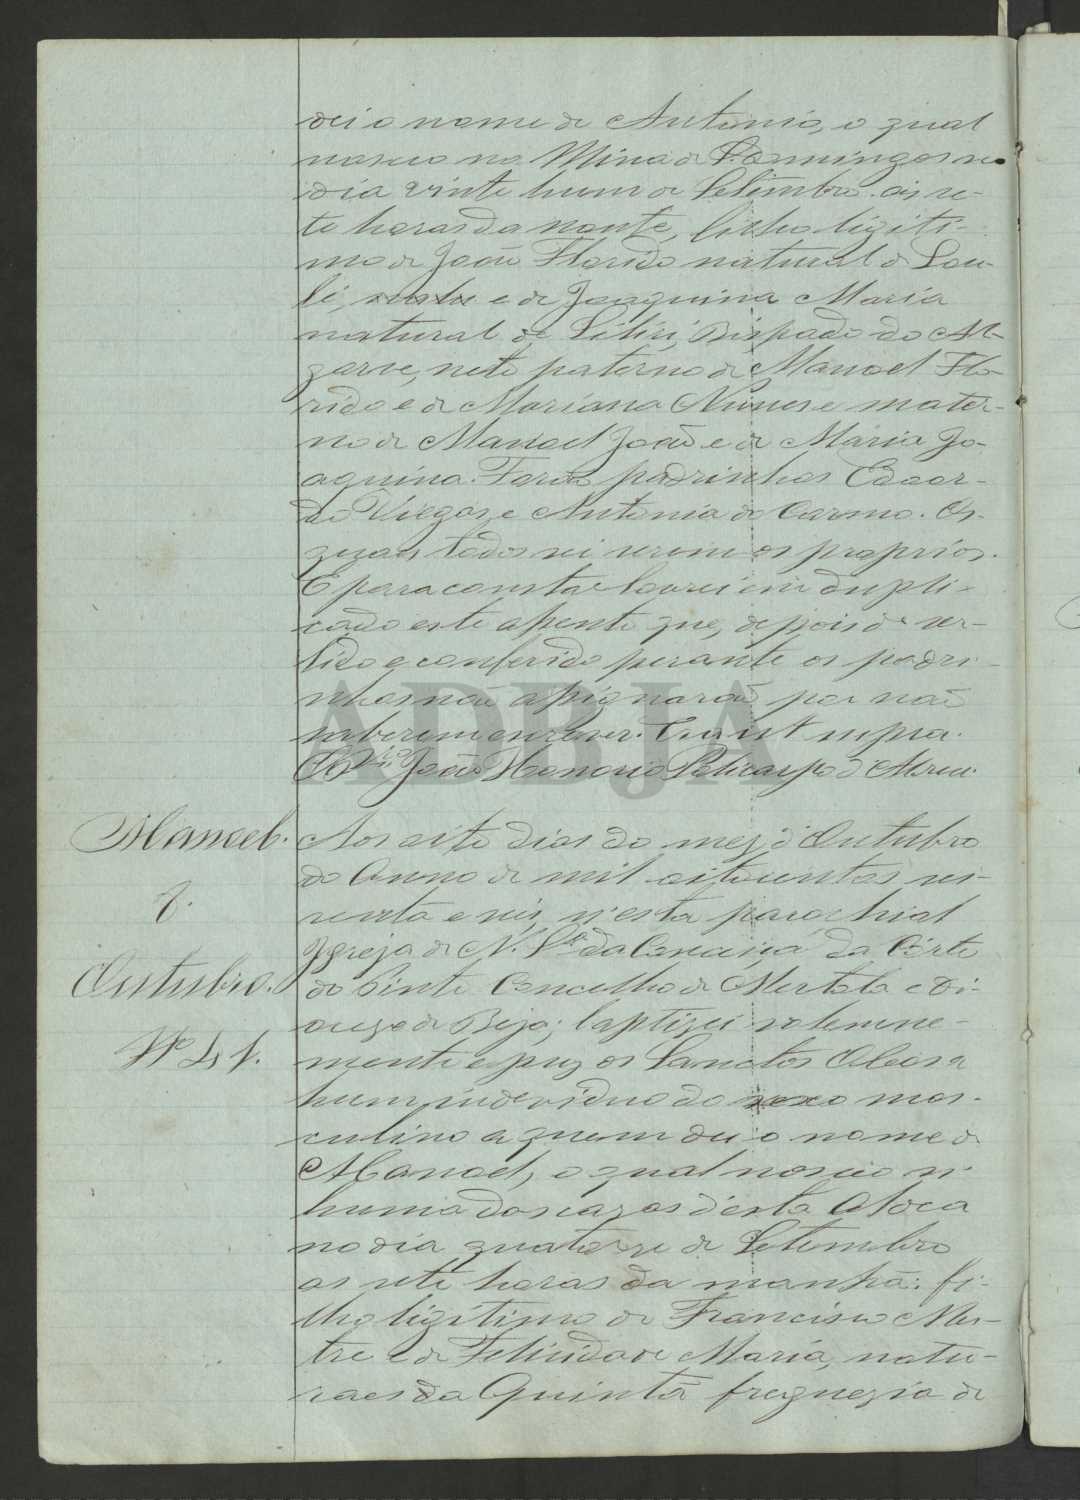 dei o nome de Antonio, o qual
nasceo na Mina de S. Domingos no
dia vinte hum de Setembro ás se-
te horas da noute, filho legiti-
mo de João Florido natural de Lou-
lé, e de Joaquina Maria
natural de Bispado do Al-
garve, neto paterno de Manoel Flo-
rido e de Mariana Nunes e mater-
no de Manoel João e de Maria Jo-
aquina. Forão padrinhos Edoar-
do Viegas e Antonia do Carmo. Os
quaes todos sei serem os proprios.
E para constar lavrei em dupli-
cado este assento que, depois de ser
lido e conferido perante os padri-
nhos não assignarão por não
saberem escrever. Era ut supra.
João Honorio Policarpo d'Abreu.
Manoel. Aos oito dias do mez d'Outubro
do Anno de mil oitocentos se-
8. senta e seis, n'esta parochial
Igreja de N. Srª da Conceição da Côrte
Outubro. do Pinto Concelho de Mertola e Di-
ocese de Beja; baptizei solemne-
Nº 41. mente e puz os Sanctos Oleos a
hum individuo do sexo mas-
culino a quem dei o nome de
Manoel, o qual nasceo n'
huma das cazas d'esta Aldea
no dia quatorze de Setembro
as sete horas da manhã: fi-
lho legitimo de Francisco Mes-
tre e de Felicidade Maria, natu-
raes da Quintã freguezia de
ADBJA